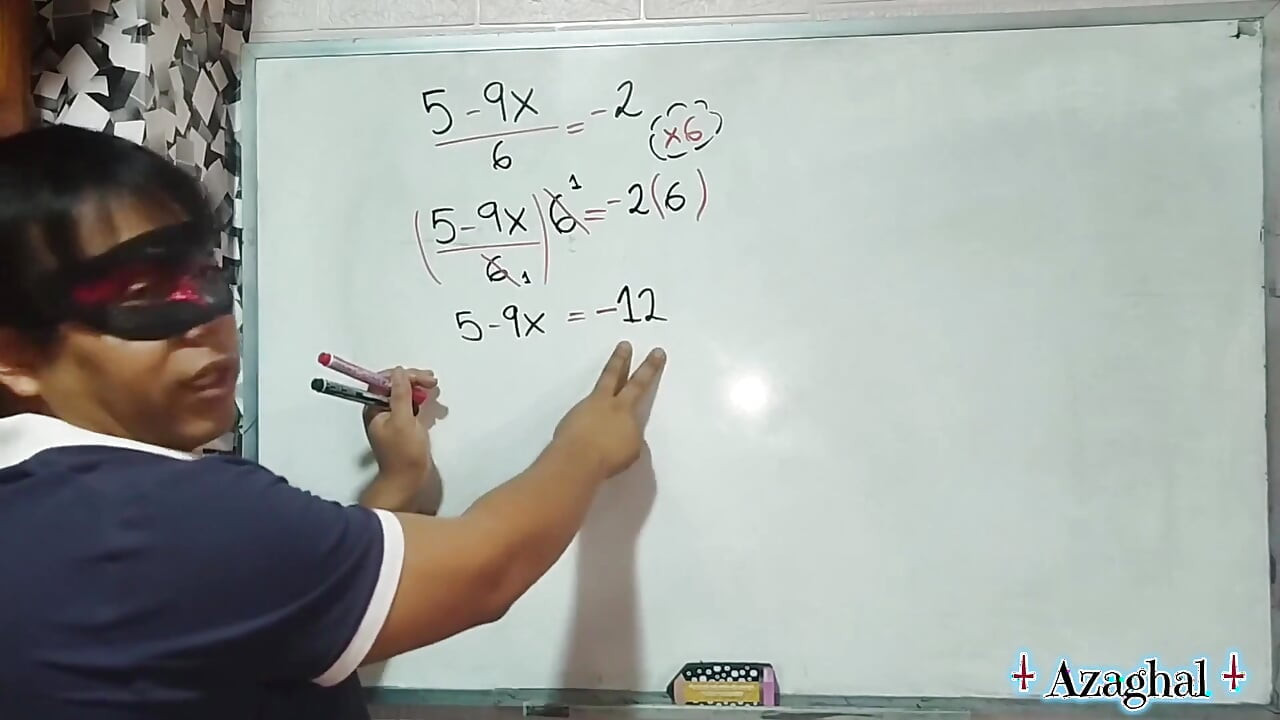 5-9x/6 = -2 (x6)
(5-9x/6 1) 6 1 = -2(6)
5-9x = -12
Azaghal